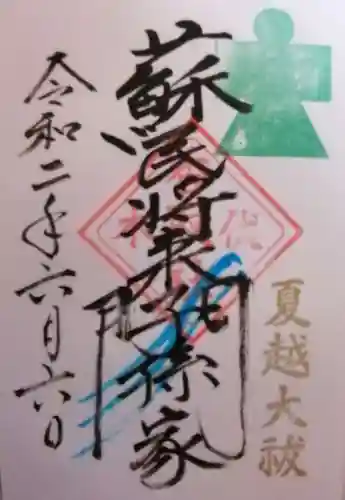 夏越大祓
蘇民将来子孫家門
令和二年六月六日